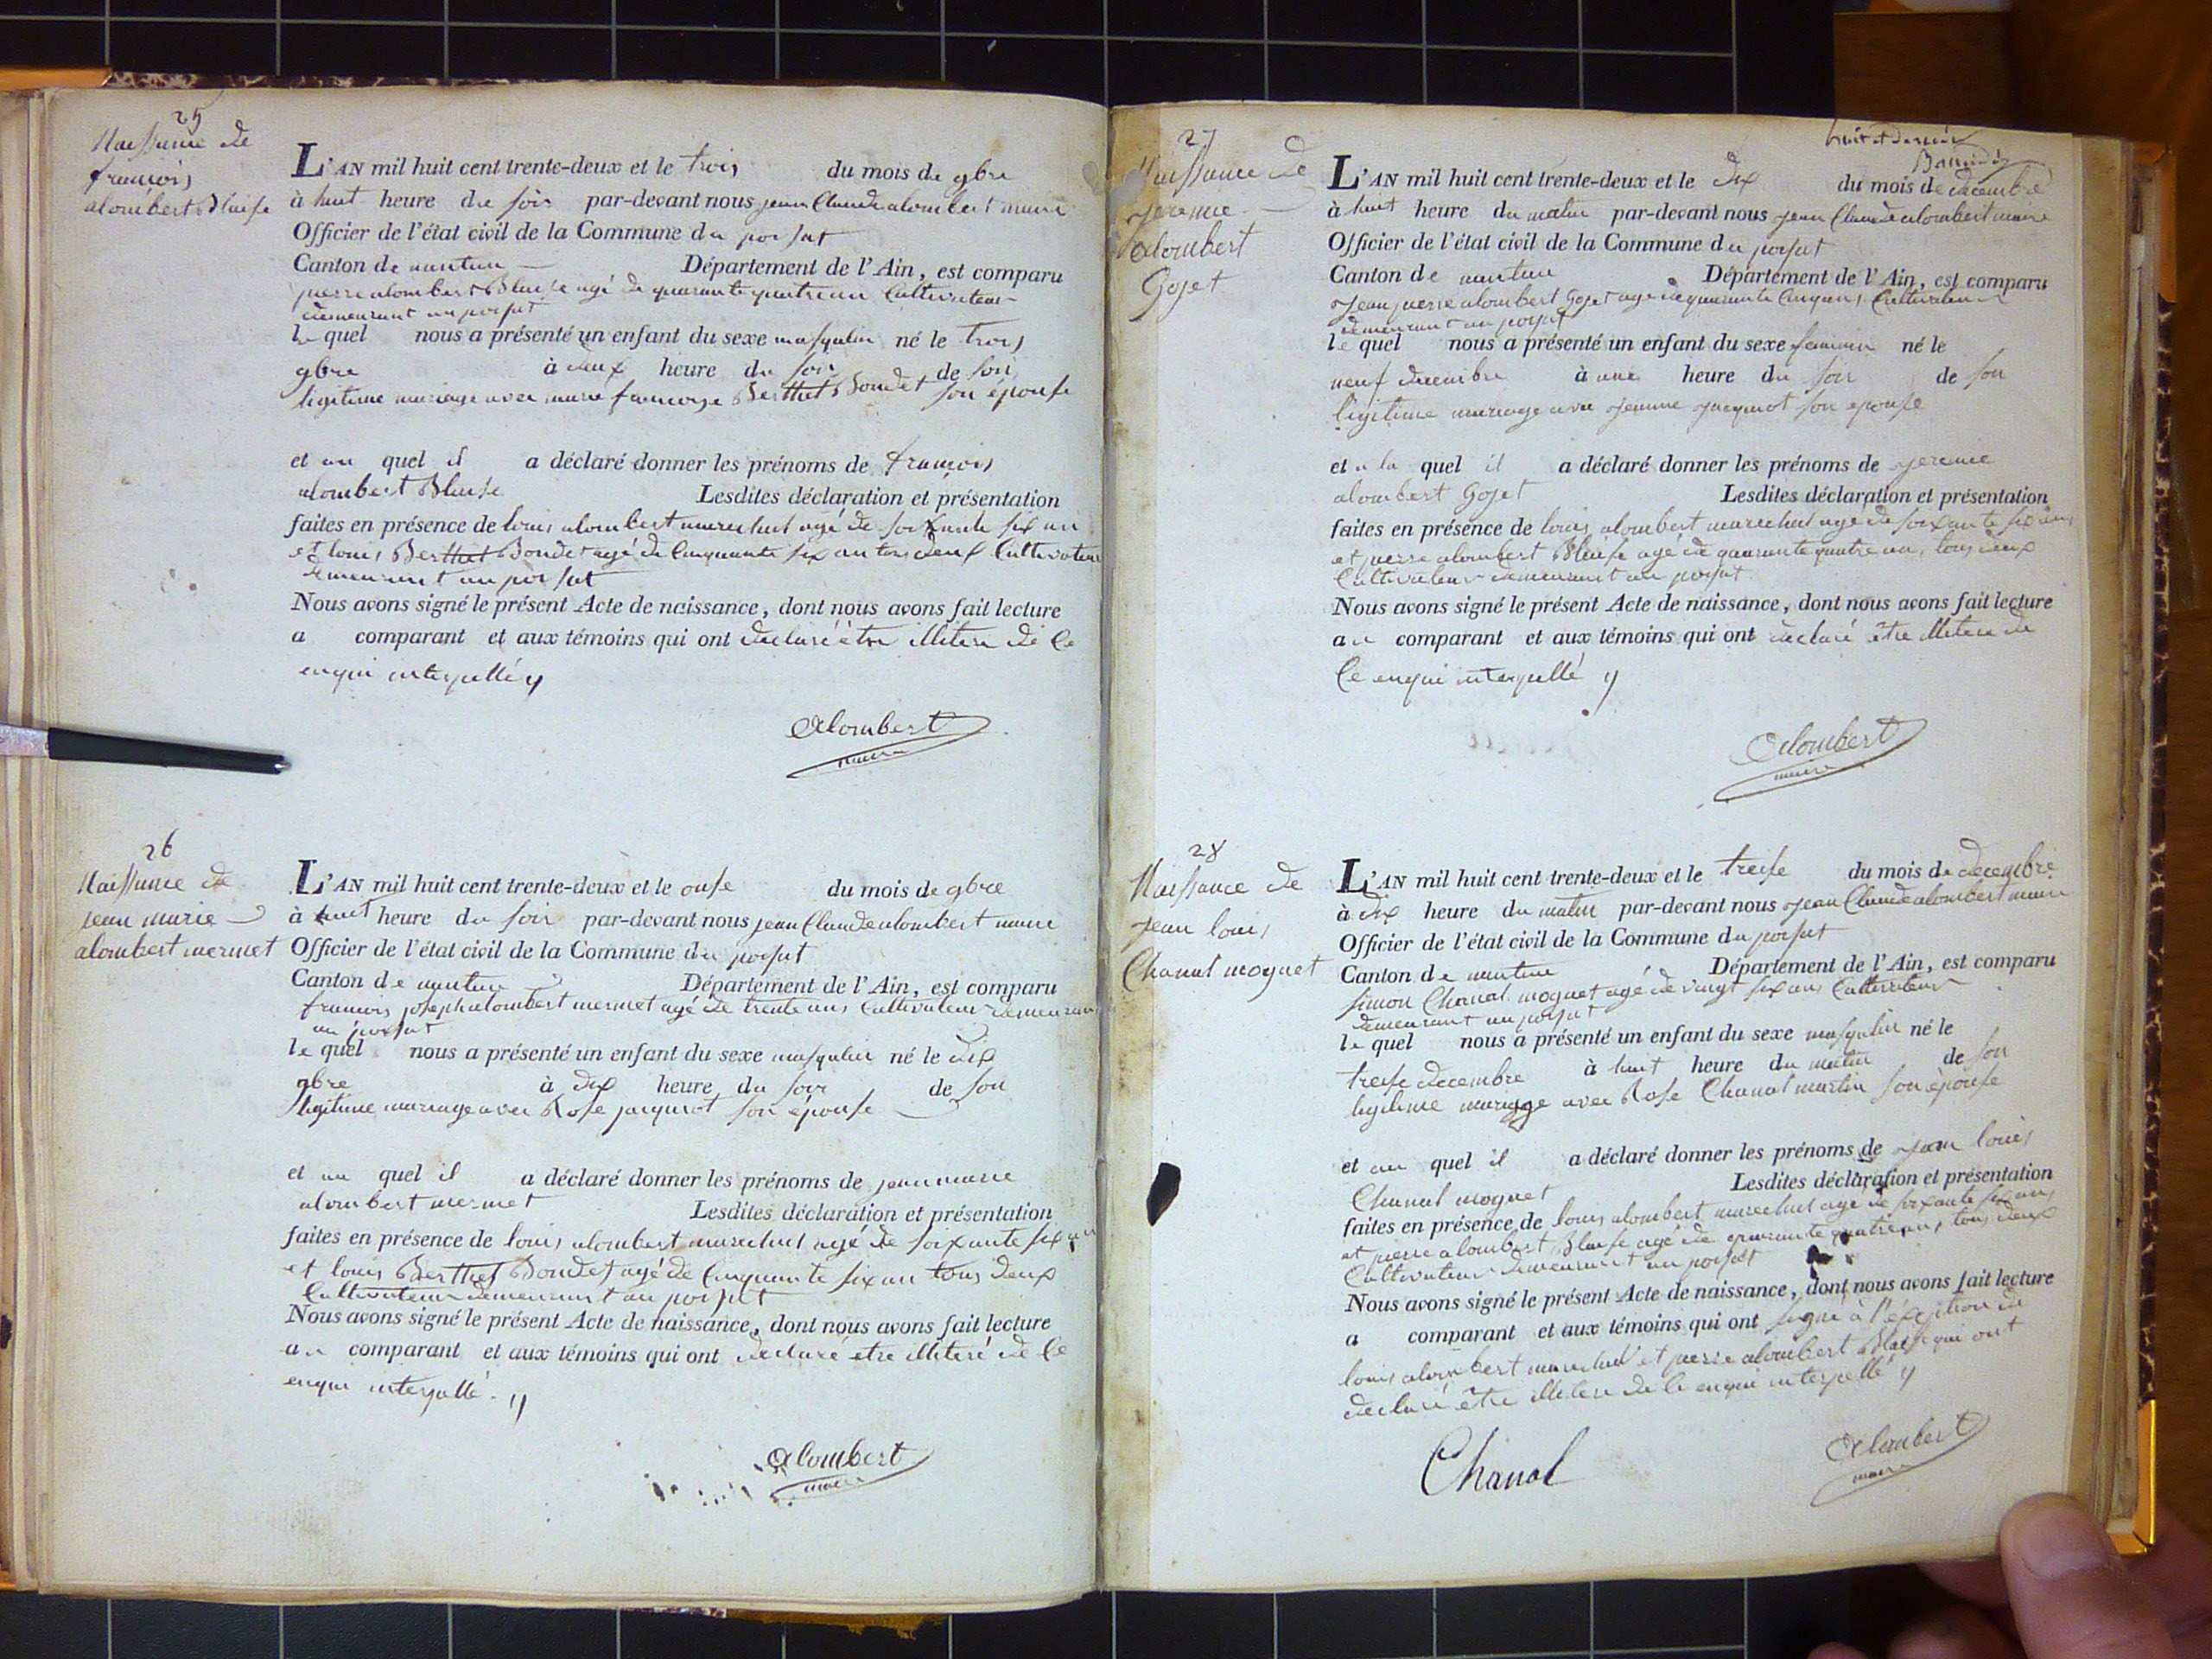 25
Naissance de
francois
alombert Blaise
L'AN mil huit cent trente-deux et le trois du mois de 9bre
à huit heure du soir par-devant nous jean Claude alombert maire
Officier de l'état civil de la Commune du poisat
Canton de nantua Département de l'Ain, est comparu
pierre alombert Blaise agé de quarante quatre an Cultivateur
demeurant au poisat
le quel nous a présenté un enfant du sexe masqulin né le trois
9bre à deux heure du soir de son
ligitime mariage avec marie francoise Berthet Bondet son épouse
et au quel il a déclaré donner les prénoms de francois
alombert Blaise Lesdites déclaration et présentation
faites en présence de louis alombert marechal agé de soixante six an
et louis Berthet Bondet agé de Cinquante six an tous deux Cultivateur
demeurant au poisat
Nous avons signé le présent Acte de naissance, dont nous avons fait lecture
a comparant et aux témoins qui ont declaré être illitere de Ce
enqui interpellé
alombert
maire
26
Naissance de
jean marie
alombert mermet
L'AN mil huit cent trente-deux et le onse du mois de 9bre
à huit heure du soir par-devant nous jean Claude alombert maire
Officier de l'état civil de la Commune du poisat
Canton de nantua Département de l'Ain, est comparu
francois joseph alombert mermet agé de trente ans Cultivateur demeurant
au poisat
le quel nous a présenté un enfant du sexe masqulin né le dix
9bre à dix heure du soir de son
ligitime mariage avec Rose jacquiot son épouse
et au quel il a déclaré donner les prénoms de jean marie
alombert mermet Lesdites déclaration et présentation
faites en présence de louis alombert marechal agé de soixante six an
et louis Berthet Bondet agé de Cinquante six an tous deux
Cultivateur demeurant au poisat
Nous avons signé le présent Acte de naissance, dont nous avons fait lecture
au comparant et aux témoins qui ont declaré etre illiteré de Ce
enqui interpellé
alombert
maire
huit et dernier
27
Naissance de
jerenie
alombert
Gojet
L'AN mil huit cent trente-deux et le dix du mois de decembre
à huit heure du matin par-devant nous jean Claude alombert maire
Officier de l'état civil de la Commune du poisat
Canton de nantua Département de l'Ain, est comparu
jean pierre alombert Gojet agé de quarante Cinq ans, Cultivateur
demeurant au poisat
le quel nous a présenté un enfant du sexe feminin né le
neuf decembre à une heure du soir de son
ligitime mariage avec jeanne jacquiot son epouse
et a la quel il a déclaré donner les prénoms de jerenie
alombert Gojet Lesdites déclaration et présentation
faites en présence de louis alombert marechal agé de soixante six ans
et pierre alombert Blaise agé de quarante quatre an, tous deux
Cultivateur demeurant au poisat
Nous avons signé le présent Acte de naissance, dont nous avons fait lecture
au comparant et aux témoins qui ont declaré être illitere de
Ce enqui interpellé
alombert
maire
28
Naissance de
jean louis
Chanal moquet
L'AN mil huit cent trente-deux et le treise du mois de decembre
à dix heure du matin par-devant nous jean Claude alombert maire
Officier de l'état civil de la Commune du poisat
Canton de nantua Département de l'Ain, est comparu
simon Chanal moquet agé de vingt six ans Cultivateur
demeurant au poisat
le quel nous a présenté un enfant du sexe masqulin né le
treise decembre à huit heure du matin de son
ligitime mariage avec Rose Chanal martin son épouse
et au quel il a déclaré donner les prénoms de jean louis
Chanal moquet Lesdites déclaration et présentation
faites en présence de louis alombert marechal agé de soixante six ans
et pierre alombert Blaise agé de quarante quatre ans, tous deux
Cultivateur demeurant au poisat
Nous avons signé le présent Acte de naissance, dont nous avons fait lecture
a comparant et aux témoins qui ont signé à l'éxeption de
louis alombert marechal et pierre alombert Blaise qui ont
declaré être illitere de Ce enqui interpellé
Chanal
alombert
maire